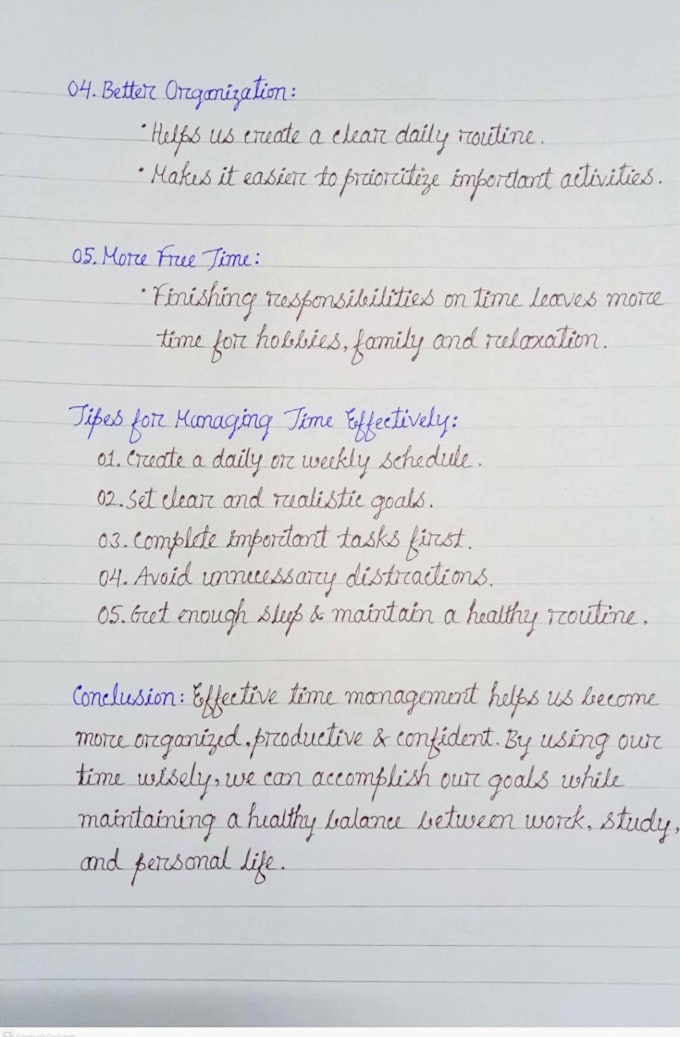 04. Better Organization:
• Helps us create a clear daily routine.
• Makes it easier to prioritize important activities.
05. More Free Time:
• Finishing responsibilities on time leaves more
time for hobbies, family and relaxation.
Tipes for Managing Time Effectively:
01. Create a daily or weekly schedule.
02. Set clear and realistic goals.
03. Complete important tasks first.
04. Avoid unnecessary distractions.
05. Get enough sleep & maintain a healthy routine.
Conclusion: Effective time management helps us become
more organized, productive & confident. By using our
time wisely, we can accomplish our goals while
maintaining a healthy balance between work, study,
and personal life.